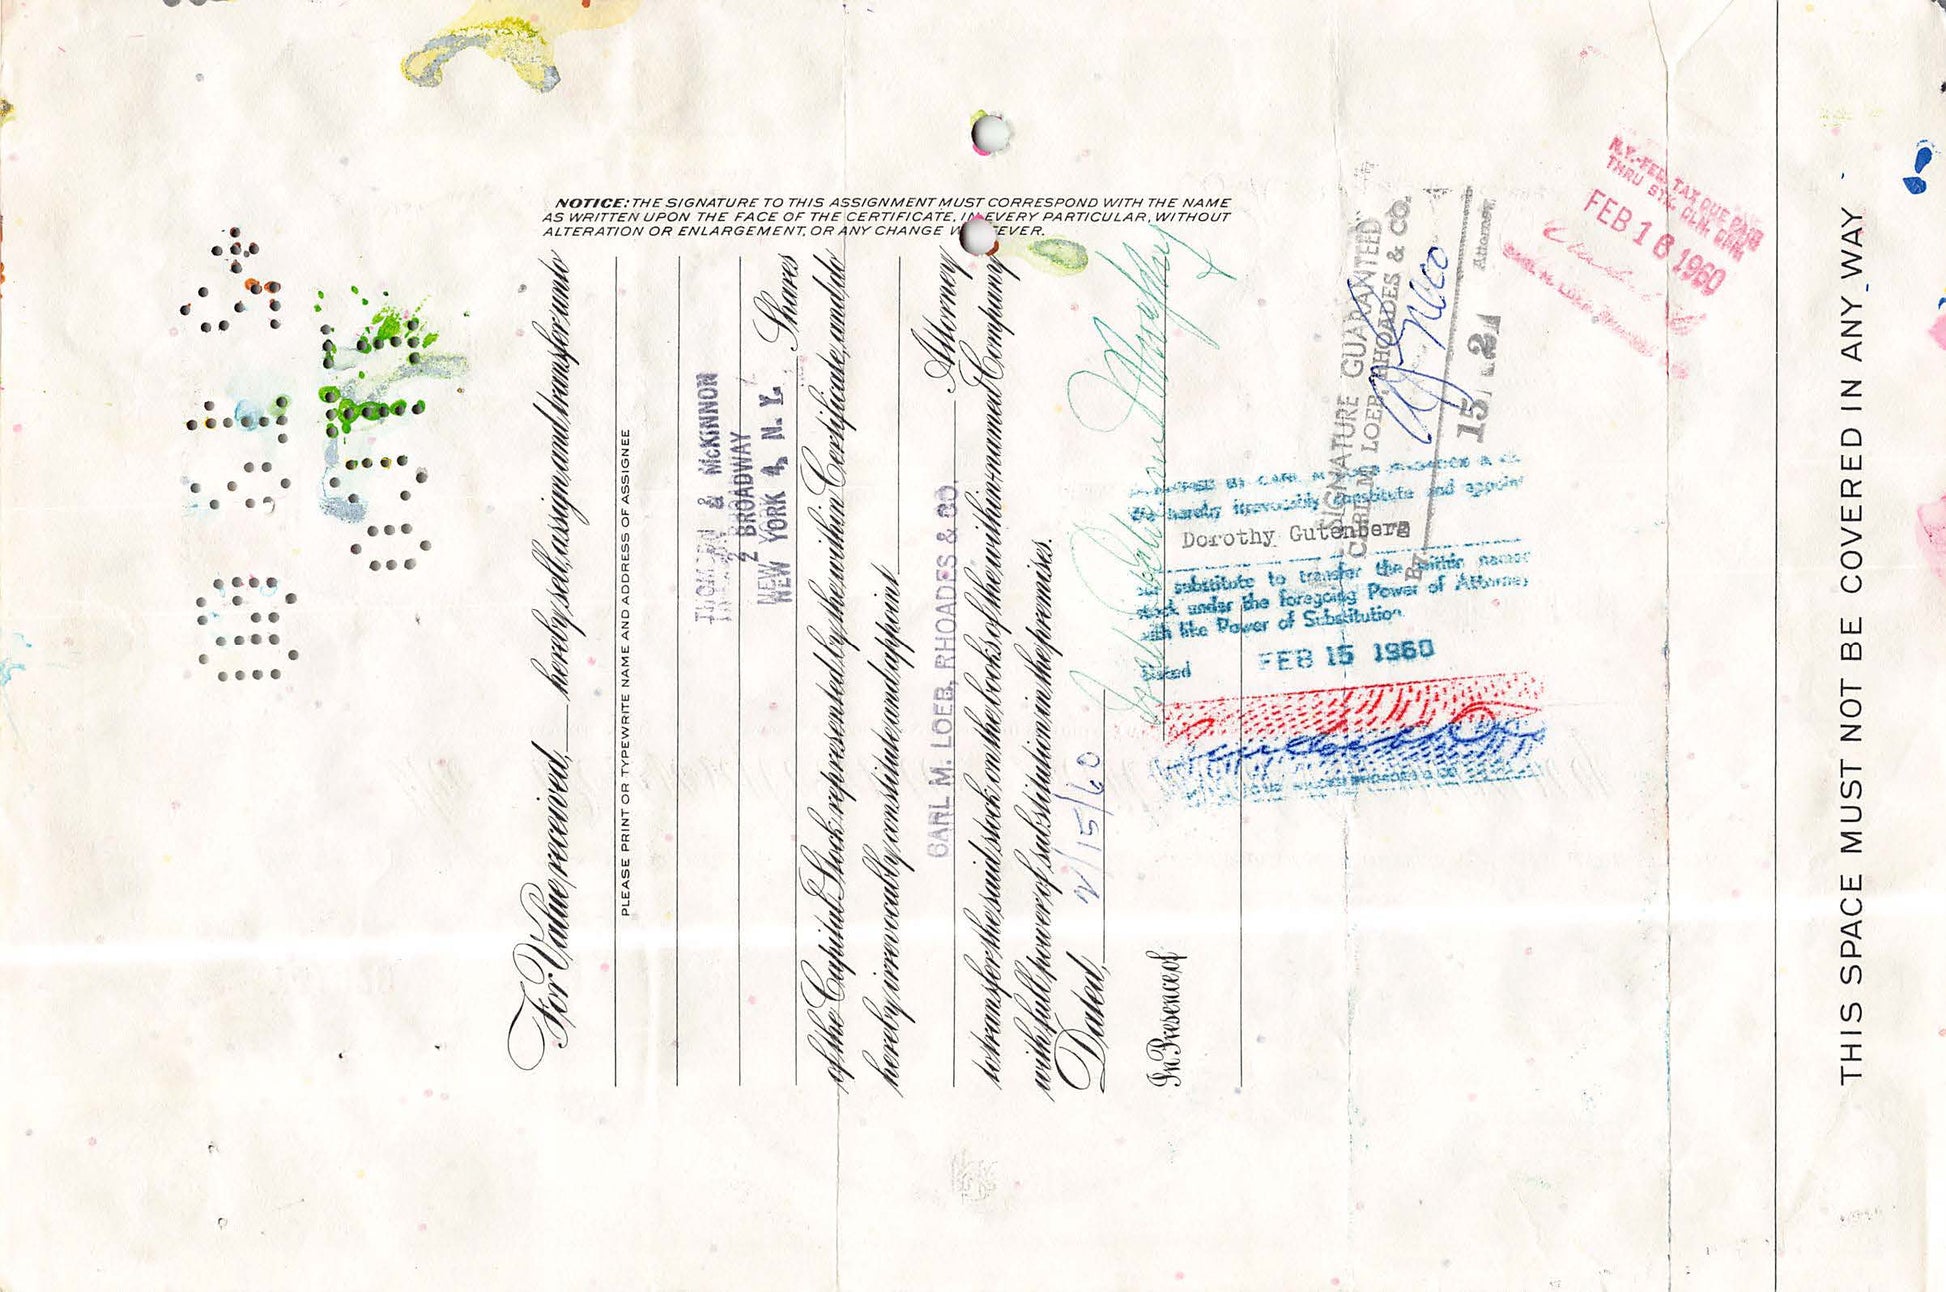 NOTICE: THE SIGNATURE TO THIS ASSIGNMENT MUST CORRESPOND WITH THE NAME
AS WRITTEN UPON THE FACE OF THE CERTIFICATE, IN EVERY PARTICULAR, WITHOUT
ALTERATION OR ENLARGEMENT, OR ANY CHANGE WHATEVER.
For Value received, hereby sell, assign and transfer unto
PLEASE PRINT OR TYPEWRITE NAME AND ADDRESS OF ASSIGNEE
THOMSON & McKINNON
2 BROADWAY
NEW YORK 4, N. Y.
Shares
of the Capital Stock represented by the within Certificate, and do
hereby irrevocably constitute and appoint
CARL M. LOEB, RHOADES & CO.
Attorney
to transfer the said stock on the books of the within named Company
with full power of substitution in the premises.
Dated, 2/15/60
In Presence of
SIGNATURE GUARANTEED
CARL M. LOEB, RHOADES & CO.
By
Attorney
15 21
hereby irrevocably constitute and appoint
Dorothy Gutenberg
substitute to transfer the within named
stock under the foregoing Power of Attorney
with like Power of Substitution
Dated FEB 15 1960
N.Y.-FED. TAX DUE PAID
THRU STK. CLR. CRP.
FEB 16 1960
THIS SPACE MUST NOT BE COVERED IN ANY WAY